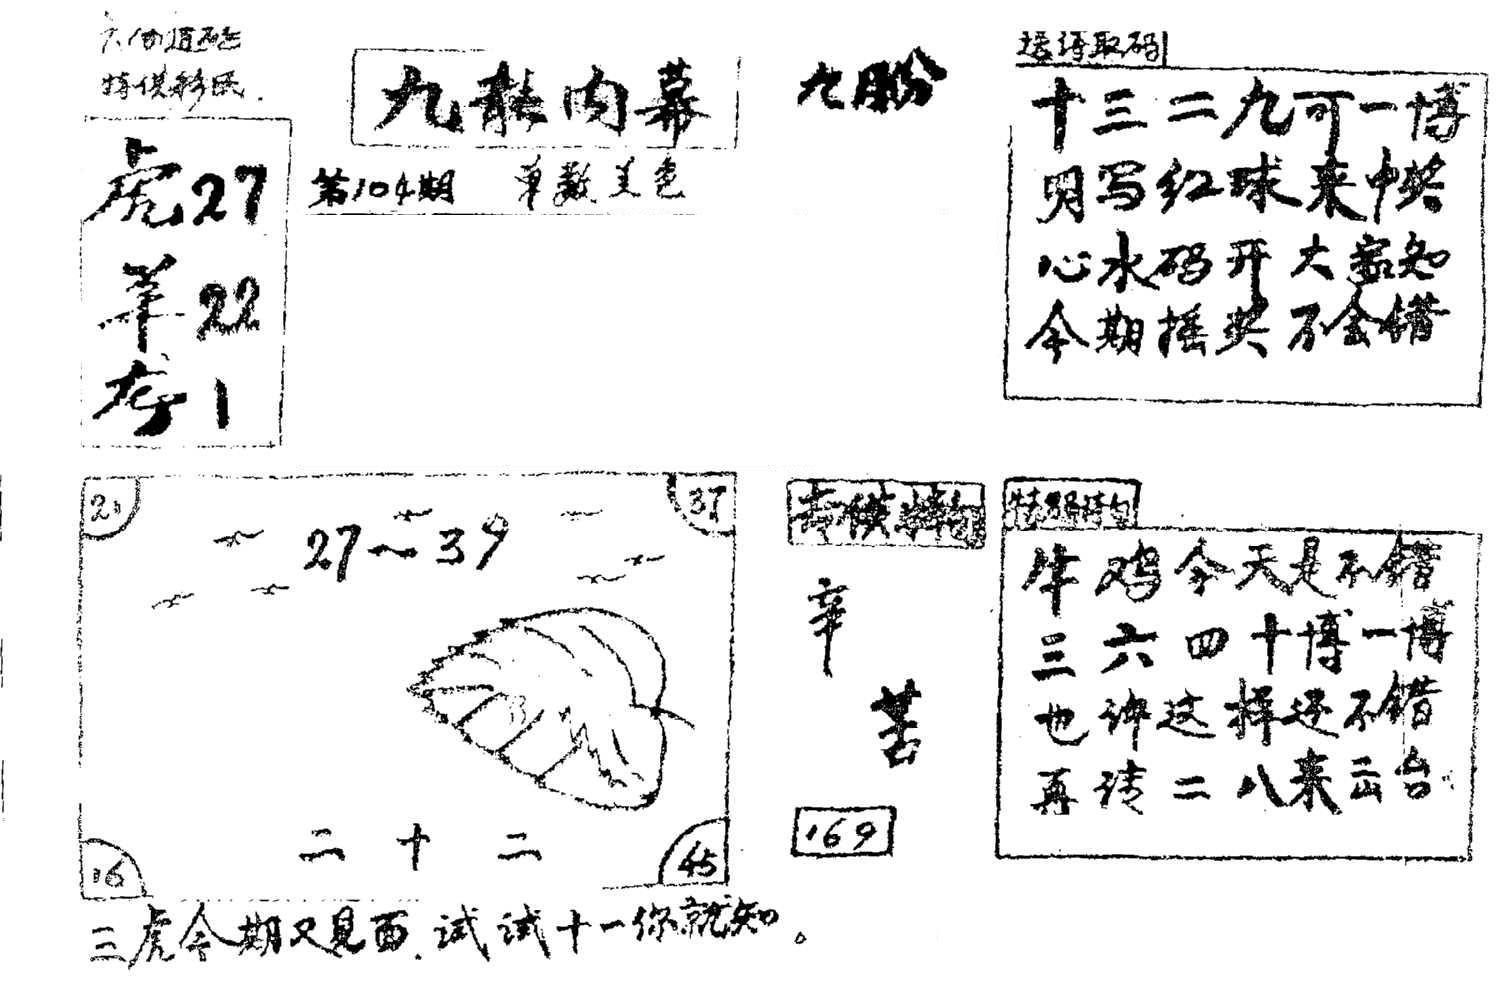 特供彩民.
九龙内幕
第104期 单数美色
九肖
虎27
羊22
虎1
送诗取码
十三二九可一博
另写红球来中奖
心水码开大家知
今期摇奖不会错
21
37
27~39
二十二
16
45
三虎今期又见面.试试十一你就知。
辛
苦
169
牛鸡今天是不错
三六四十博一博
也许这择还不错
再请二八来出台